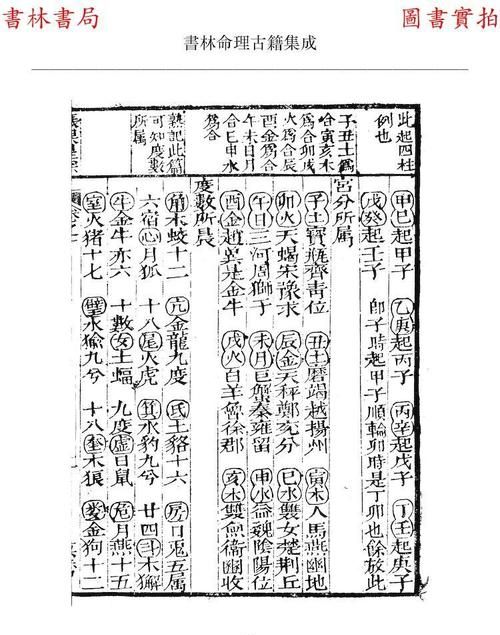 書林書局
圖書實拍
書林命理古籍集成
此起四柱
例也
子丑土爲
合寅亥木
爲合卯戌
火爲合辰
酉金爲合
午未日月
合巳申水
爲合
熟記此篇
可知度數
所属
甲己起甲子 乙庚起丙子 丙辛起戊子 丁壬起庚子
戊癸起壬子 卽子時起甲子順輪卯時是丁卯也餘放此
宮分所属
子土寶瓶齊青位 丑土磨竭越揚州 寅木人馬燕幽地
卯火天蝎宋豫求 辰金天秤鄭兖分 巳水雙女楚荆丘
午日三河周獅子 未月巨蟹秦雍留 申水益魏陰陽位
酉金趙冀是金牛 戌火白羊魯徐郡 亥木雙魚衞幽收
度數所屬
角木蛟十二 亢金龍九度 氐土貉十六 房日兎五属
六宿心月狐 十八尾火虎 箕水豹九兮 廿四斗木獬
牛金牛亦六 十數女土蝠 九度虛日鼠 危月燕十五
室火猪十七 壁水貐九兮 十八奎木狼 婁金狗十二